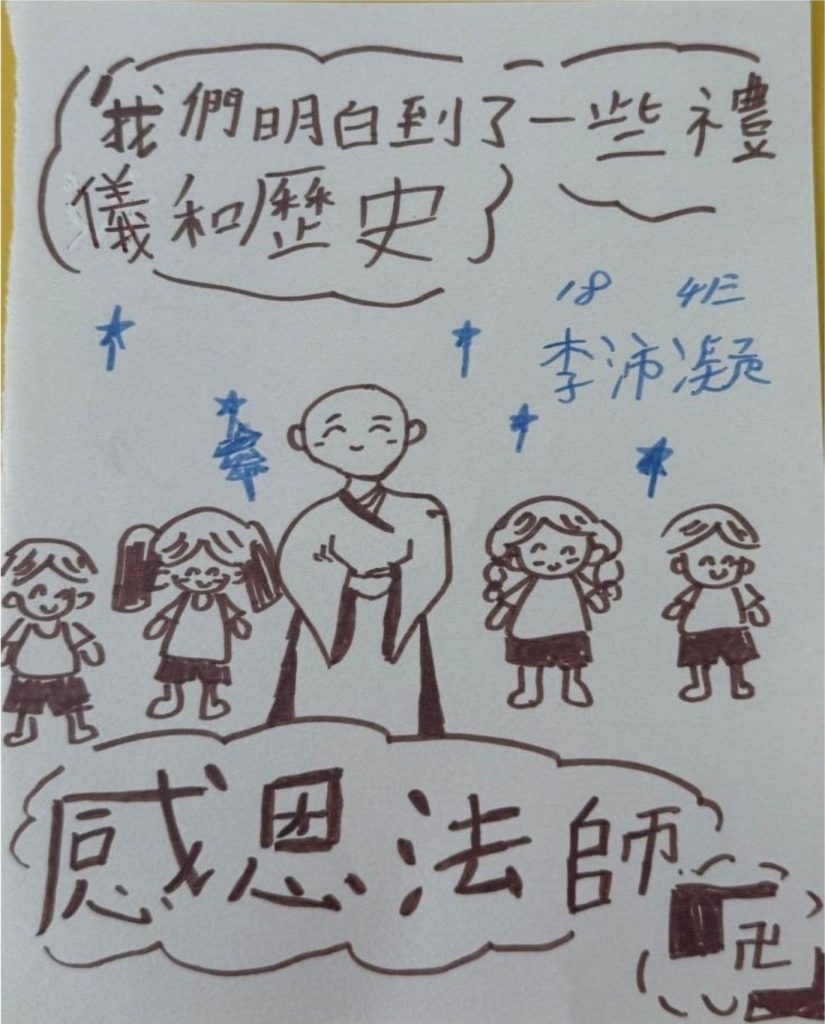 我們明白到了一些禮
儀和歷史
18 4E
李沛凝
感恩法師
卍